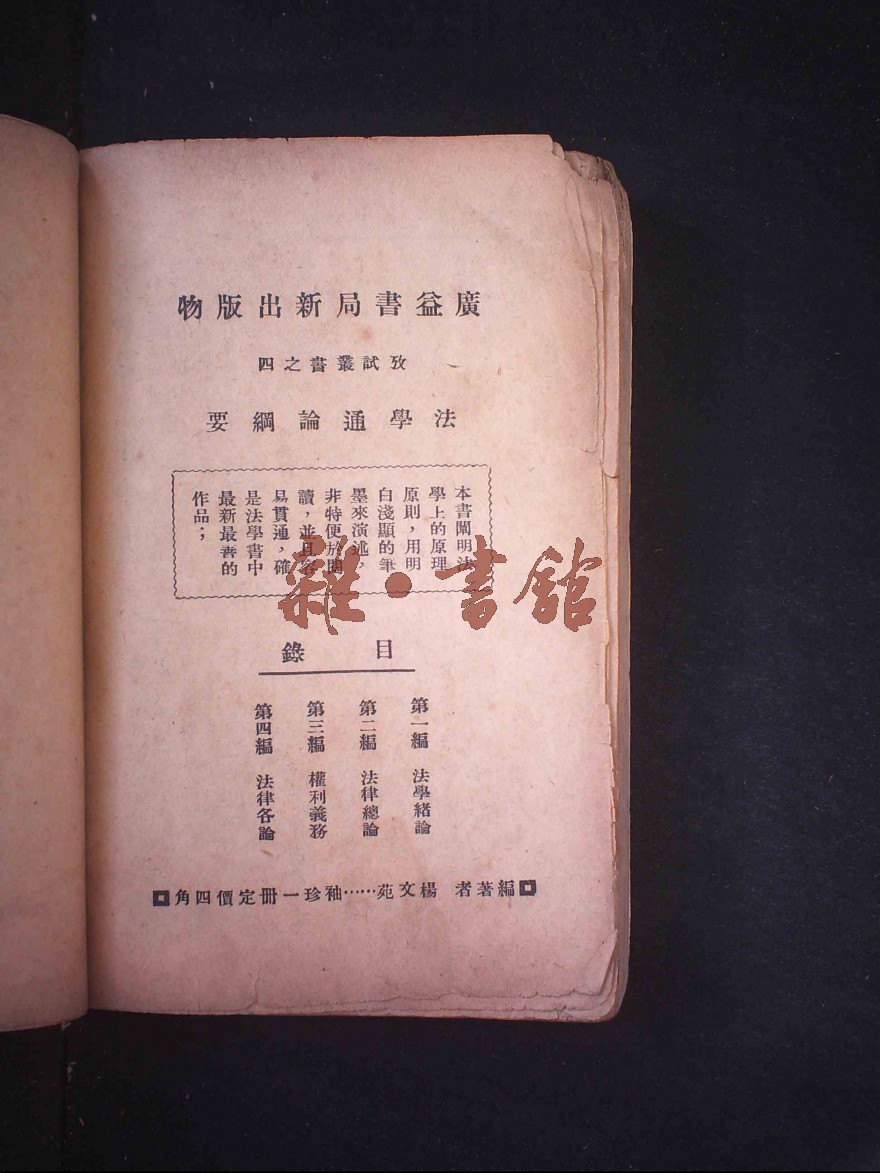 廣益書局新出版物
攷試叢書之四
法學通論綱要
本書闡明法
學上的原理
原則，用明
白淺顯的筆
墨來演述，
非特便於閱
讀，並且容
易貫通，確
是法學書中
最新最善的
作品；
雜·書館
目錄
第一編 法學緒論
第二編 法律總論
第三編 權利義務
第四編 法律各論
編著者 楊文苑……袖珍一冊定價四角